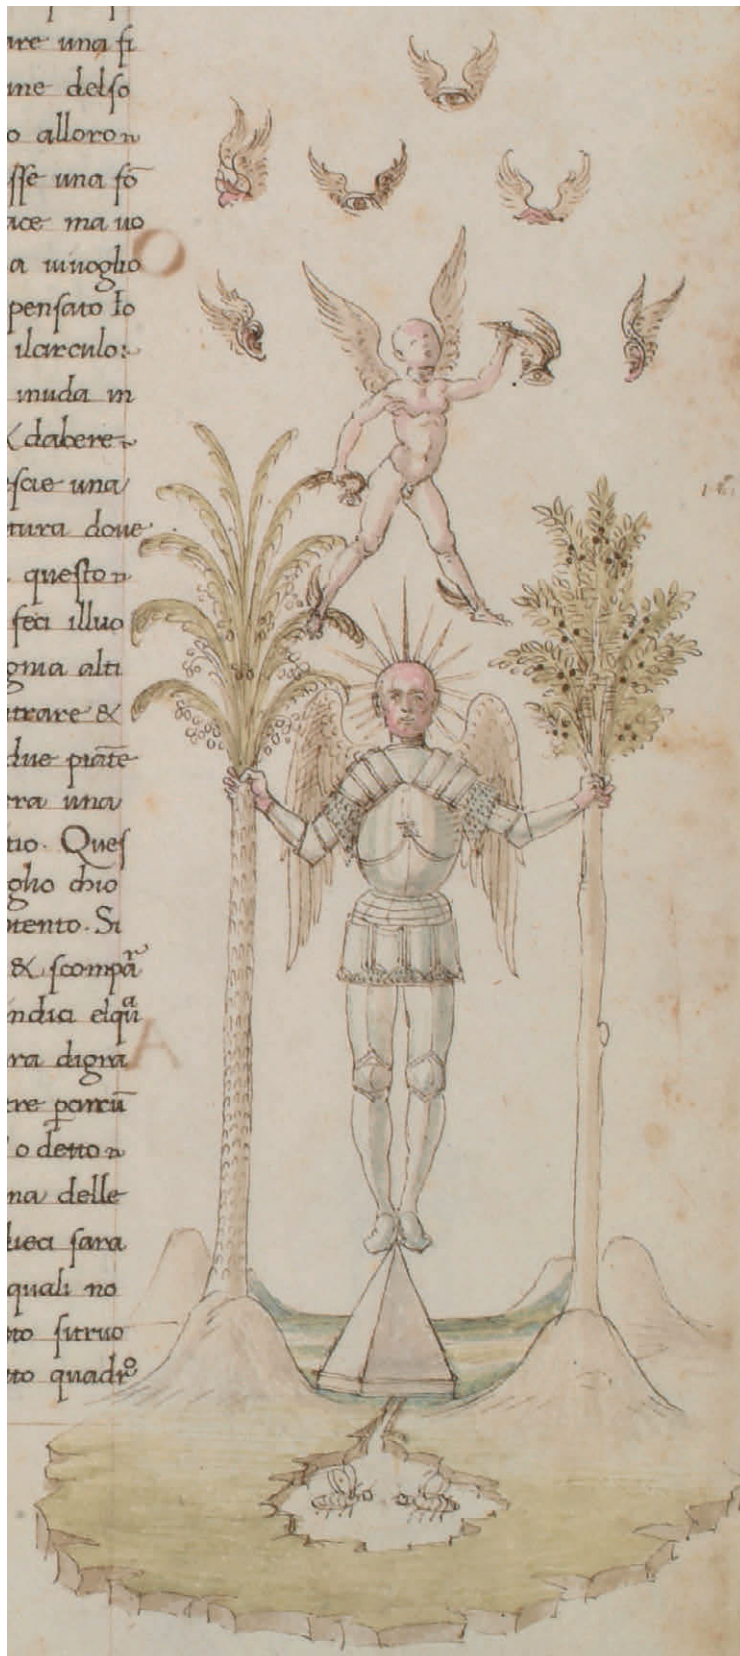 are una fi
me delso
o alloro n
sse una fō
ace ma uo
a inuoglio
pensato Io
ilcirculo:
muda in
& dabere
escie una
tura doue
questo n
feci illuo
oma alti
trare &
due piāte
rra una
tio. Ques
oglio chio
tento. Si
& scompar
india elqua
ra digrā
re parcū
o detto n
na delle
dieci sara
quali no
to situo
to quadro